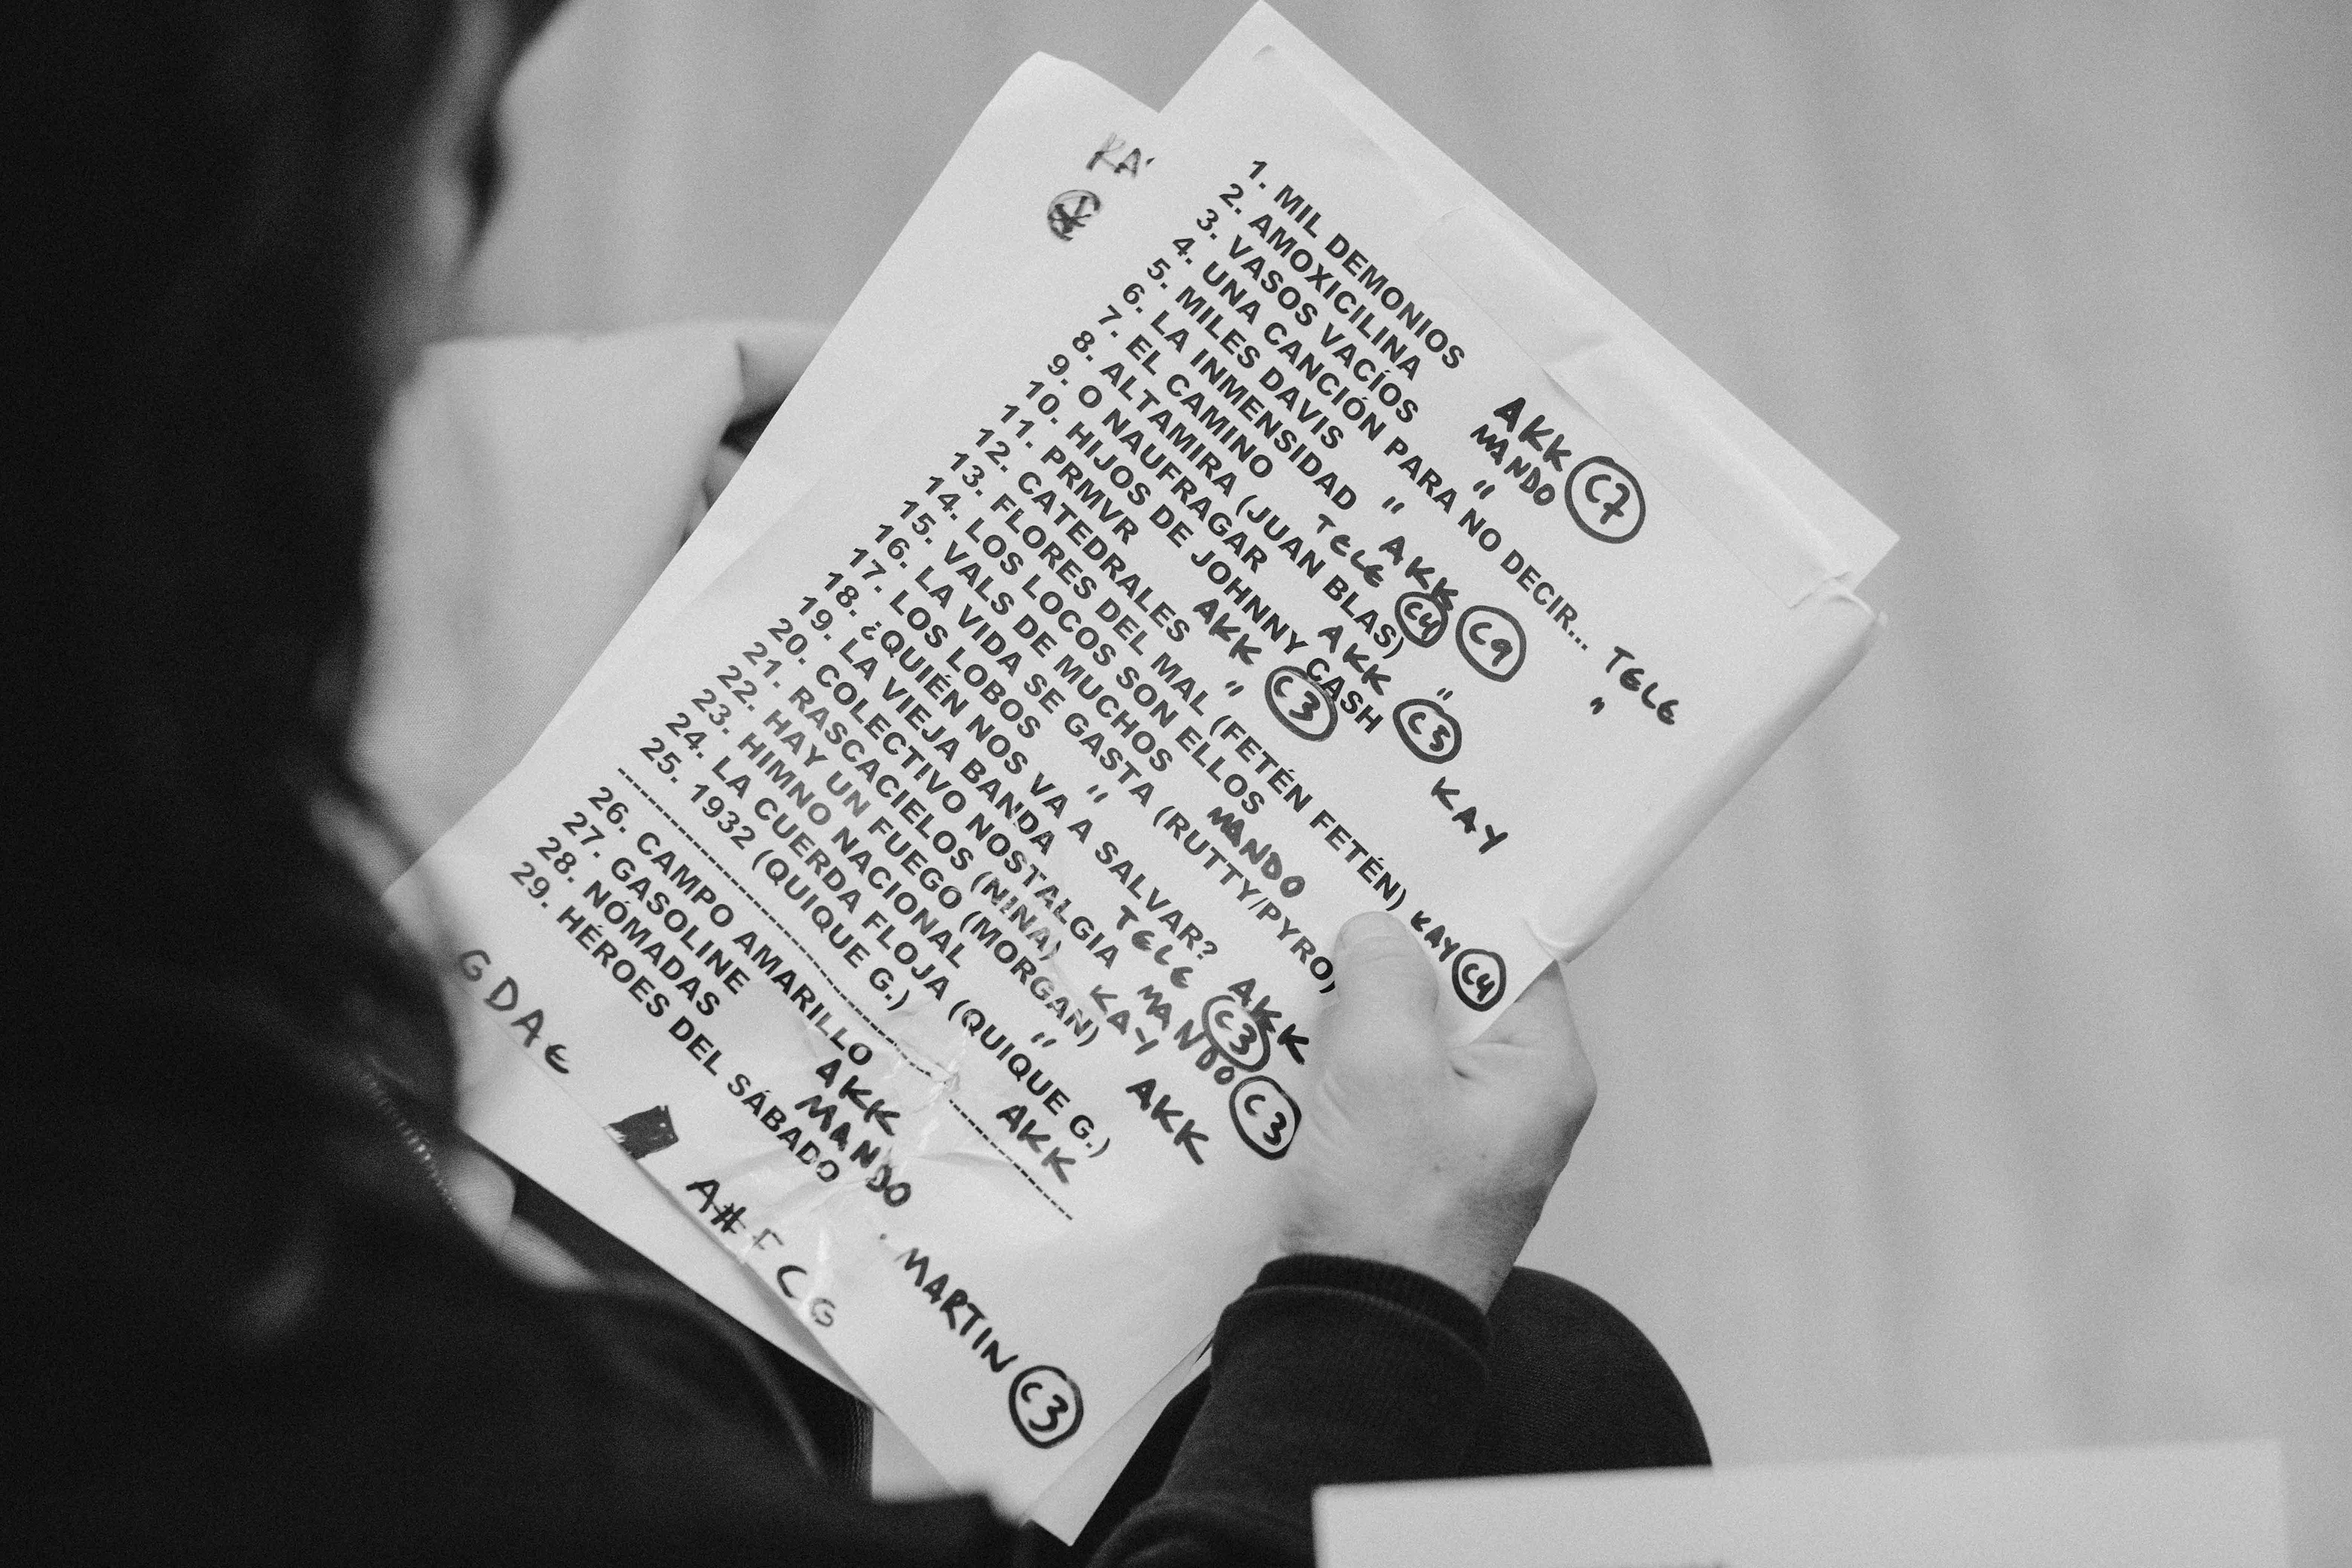 KA
1. MIL DEMONIOS AKK C7
2. AMOXICILINA MANDO
3. VASOS VACÍOS "
4. UNA CANCIÓN PARA NO DECIR... TELE
5. MILES DAVIS " "
6. LA INMENSIDAD AKK C9
7. EL CAMINO TELE C4
8. ALTAMIRA (JUAN BLAS) "
9. O NAUFRAGAR AKK C5
10. HIJOS DE JOHNNY CASH KAY
11. PRMVR AKK C3
12. CATEDRALES "
13. FLORES DEL MAL (FETÉN FETÉN) KAY C4
14. LOS LOCOS SON ELLOS
15. VALS DE MUCHOS MANDO
16. LA VIDA SE GASTA (RUTTY/PYRO)
17. LOS LOBOS "
18. ¿QUIÉN NOS VA A SALVAR? AKK
19. LA VIEJA BANDA TELE C3
20. COLECTIVO NOSTALGIA MANDO C3
21. RASCACIELOS (NINA) KAY
22. HAY UN FUEGO (MORGAN) AKK
23. HIMNO NACIONAL "
24. LA CUERDA FLOJA (QUIQUE G.)
25. 1932 (QUIQUE G.) AKK
26. CAMPO AMARILLO
27. GASOLINE AKK
28. NÓMADAS MANDO
29. HÉROES DEL SÁBADO . MARTIN C3
GDAE
A# F C G